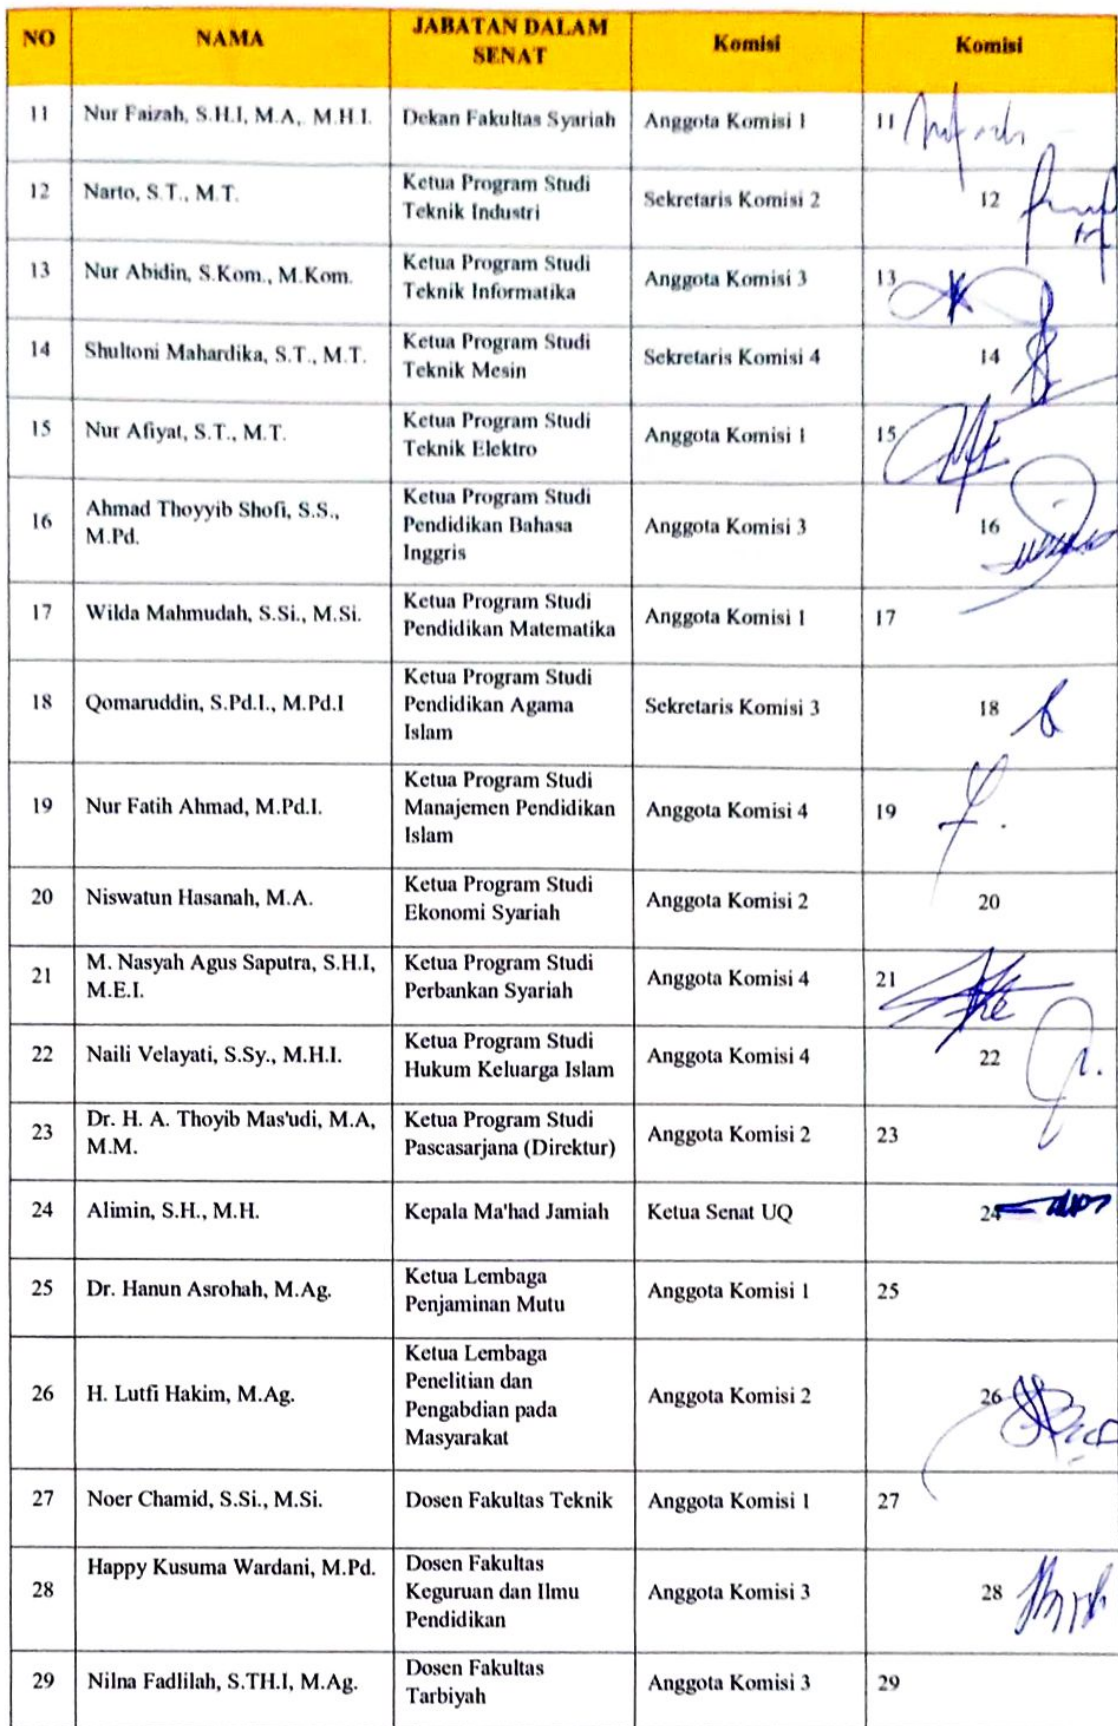 NO NAMA JABATAN DALAM SENAT Komisi Komisi
11 Nur Faizah, S.H.I, M.A,. M.H.I. Dekan Fakultas Syariah Anggota Komisi 1 11
12 Narto, S.T., M.T. Ketua Program Studi Teknik Industri Sekretaris Komisi 2 12
13 Nur Abidin, S.Kom., M.Kom. Ketua Program Studi Teknik Informatika Anggota Komisi 3 13
14 Shultoni Mahardika, S.T., M.T. Ketua Program Studi Teknik Mesin Sekretaris Komisi 4 14
15 Nur Afiyat, S.T., M.T. Ketua Program Studi Teknik Elektro Anggota Komisi 1 15
16 Ahmad Thoyyib Shofi, S.S., M.Pd. Ketua Program Studi Pendidikan Bahasa Inggris Anggota Komisi 3 16
17 Wilda Mahmudah, S.Si., M.Si. Ketua Program Studi Pendidikan Matematika Anggota Komisi 1 17
18 Qomaruddin, S.Pd.I., M.Pd.I Ketua Program Studi Pendidikan Agama Islam Sekretaris Komisi 3 18
19 Nur Fatih Ahmad, M.Pd.I. Ketua Program Studi Manajemen Pendidikan Islam Anggota Komisi 4 19
20 Niswatun Hasanah, M.A. Ketua Program Studi Ekonomi Syariah Anggota Komisi 2 20
21 M. Nasyah Agus Saputra, S.H.I, M.E.I. Ketua Program Studi Perbankan Syariah Anggota Komisi 4 21
22 Naili Velayati, S.Sy., M.H.I. Ketua Program Studi Hukum Keluarga Islam Anggota Komisi 4 22
23 Dr. H. A. Thoyib Mas'udi, M.A, M.M. Ketua Program Studi Pascasarjana (Direktur) Anggota Komisi 2 23
24 Alimin, S.H., M.H. Kepala Ma'had Jamiah Ketua Senat UQ 24
25 Dr. Hanun Asrohah, M.Ag. Ketua Lembaga Penjaminan Mutu Anggota Komisi 1 25
26 H. Lutfi Hakim, M.Ag. Ketua Lembaga Penelitian dan Pengabdian pada Masyarakat Anggota Komisi 2 26
27 Noer Chamid, S.Si., M.Si. Dosen Fakultas Teknik Anggota Komisi 1 27
28 Happy Kusuma Wardani, M.Pd. Dosen Fakultas Keguruan dan Ilmu Pendidikan Anggota Komisi 3 28
29 Nilna Fadlilah, S.TH.I, M.Ag. Dosen Fakultas Tarbiyah Anggota Komisi 3 29